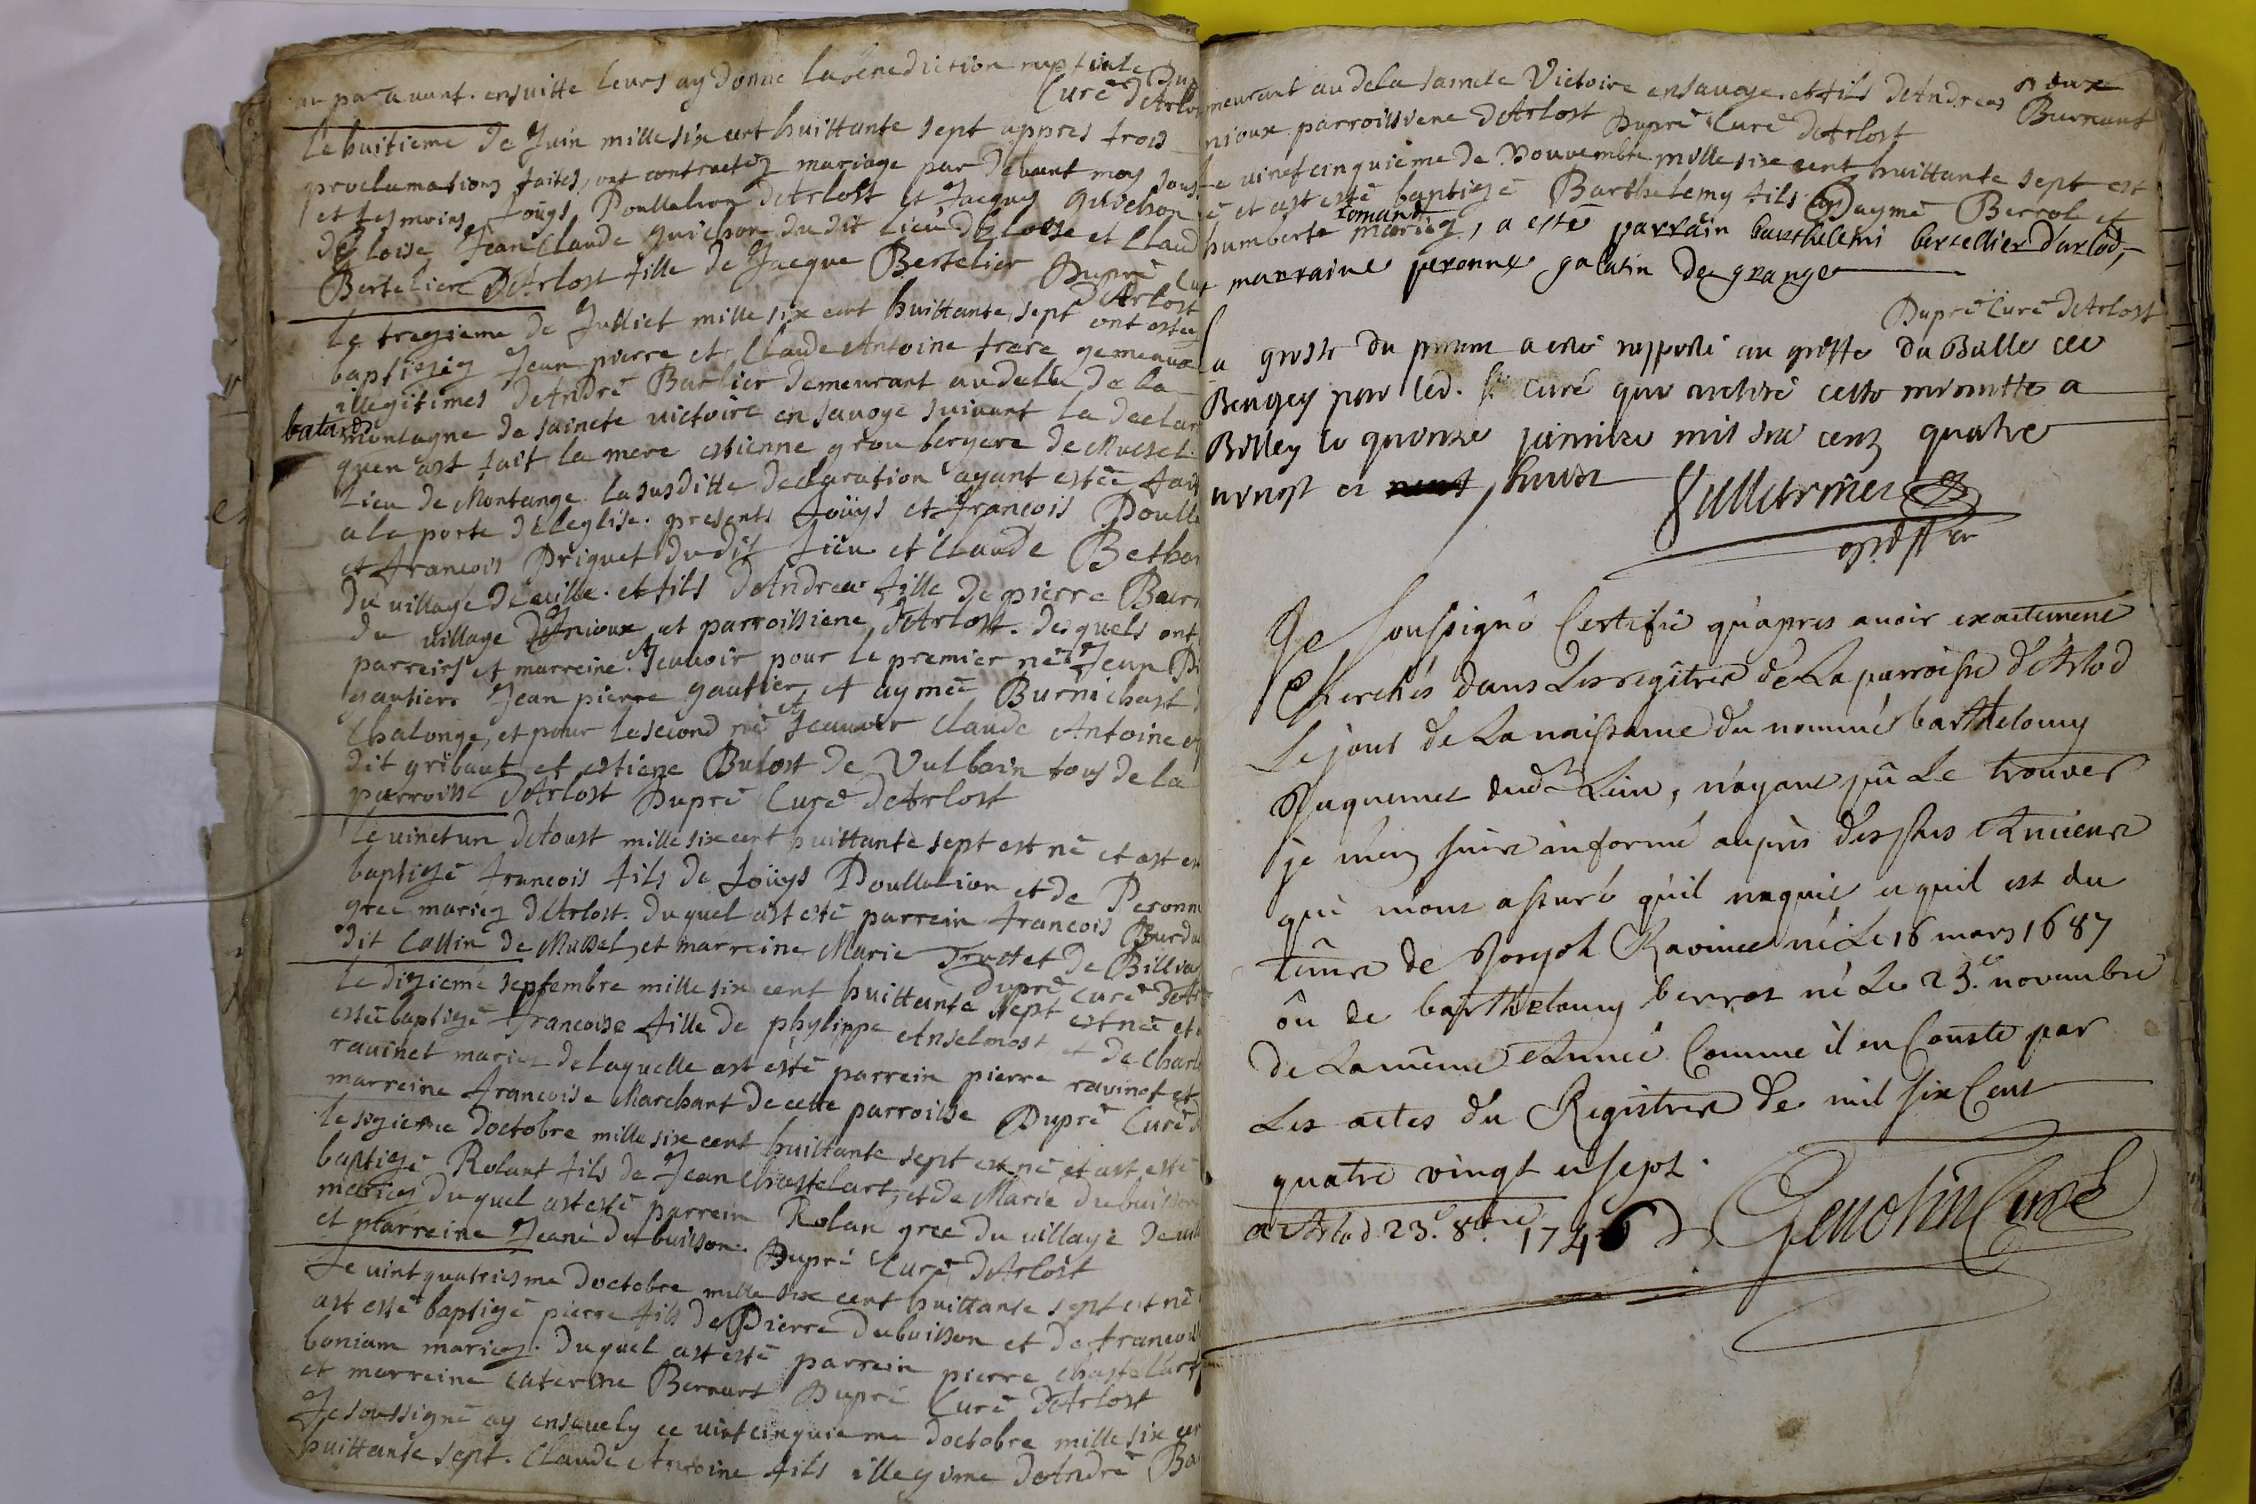 au par avant. ensuitte leurs ay donné la benediction nuptiale Dup
Curé d'Arlos
Le huitieme de Juin mille six cent huittante sept appres trois
proclamations faites, ont contractez mariage par devant moy sous
et tesmoins Loüys Doullation d'Arlost et Jacques Guichon
d'Eloise Jean Claude Guichon du dit lieu d'Eloise et Claud
Berteliere d'Arlost fille de Jacque Bertelier Dupré Cur
d'Arlost
Le tregieme de Julliet mille six cent huittante sept ont estés
baptizéz Jean pierre et Claude Antoine frere gemeaux
illegitimes d'André Barlier demeurant au dela de la
batards
montagne de saincte victoire en savoye suivant la declar
quen ast fait la mere estienne grou bergere de Mussel
Lieu de Montange. la susditte declaration ayant estée fait
a la porte de l'eglise. presents Loüys et francois Doulla
et francois Driguet du dit Lieu et Claude Bethor
du village de ville. et fils d'Andrea fille de pierre Burn
du village d'Anioux et parroissiene d'Arlost. des quels ont
parreins et marreine. Scavoir pour le premier né Jean Pi
gautier Jean pierre gautier, et aymée Burnichast
Chalonge, et pour le second né Scavoir Claude Antoine
dit gribaut et estiene Bulost de Vulbain tous de la
parroisse d'Arlost Dupré Curé d'Arlost
Le vinct un d'Aoust mille six cent huittante sept est né et ast es
baptizé francois fils de Loüys Doullation et de Peronn
gree mariez d'Arlost. du quel ast esté parrein francois Burd
dit Collin de Mussel, et marreine Marie Truttet de Billia
Dupré Curé d'Ar
Le dizieme septembre mille six cent huittante sept est née et
estée baptizé francoise fille de phylippe Anselmost et de Charl
ravinet mariez de laquelle ast esté parrein pierre ravinet et
marreine francoise Marchant de cette parroisse Dupré Curé
Le sizieme d'octobre mille six cent huittante sept est né et ast esté
baptizé Rolant fils de Jean Chastelart, et de Marie du buisson
mariez du quel ast esté parrein Rolan gree du village de
et marreine Jeane du buisson. Dupré Curé d'Arlost
Le vint quatriesme d'octobre mille six cent huittante sept est né
ast esté baptizé pierre fils de Pierre du buisson et de francois
boniam mariez. du quel ast esté parrein pierre chastellart
et marreine caterine Bernart Dupré Curé d'Arlost
Je soussigné ay ensevely ce vint cinquieme d'octobre mille six cen
huittante sept. Claude Antoine fils illegitime d'André Ba
meurant au dela saincte Victoire en savoye. et fils d'Andrea
Burnant
nioux parroissiene d'Arlost Dupré Curé d'Arlost
Le vinct cinquième de Nouvembre mille six cent huittante sept est
né et ast esté baptizé Barthelemy fils d'Aymé Berrot et
humberte romand mariez, a esté parrain barthelemi bertellier d'arlod,
marraine peronne galatin de grange
Dupré Curé d'Arlost
La grosse du prnnt a esté rapporté au greffe du Balle de
Beugey par led. Sr curé qui a retiré cette minutte a
Belley le quinze janvier mil six cens quatre
vingt et huict
Vuilliermet
greffier
Je soussigné Certifie qu'apres avoir exactement
Cherchés dans Les regîtres de La parroisse d'Arlod
Le jour de La naissance du nommé barthelomy
Duquemet dud. Lieu, n'ayant pû Le trouver
je m'en suis informé auprès des plus Anciens
qui m'ont assuré qu'il naquit et quil est du
têms de Joseph Ravinet né Le 16 mars 1687
ôu de barthelomy berrot né Le 23e. novembre
de La même Année Comme il en Conste par
Les actes du Registres de mil six Cent
quatre vingt et sept.
a Arlod 23e. 8bre 1746 Genolin Curé